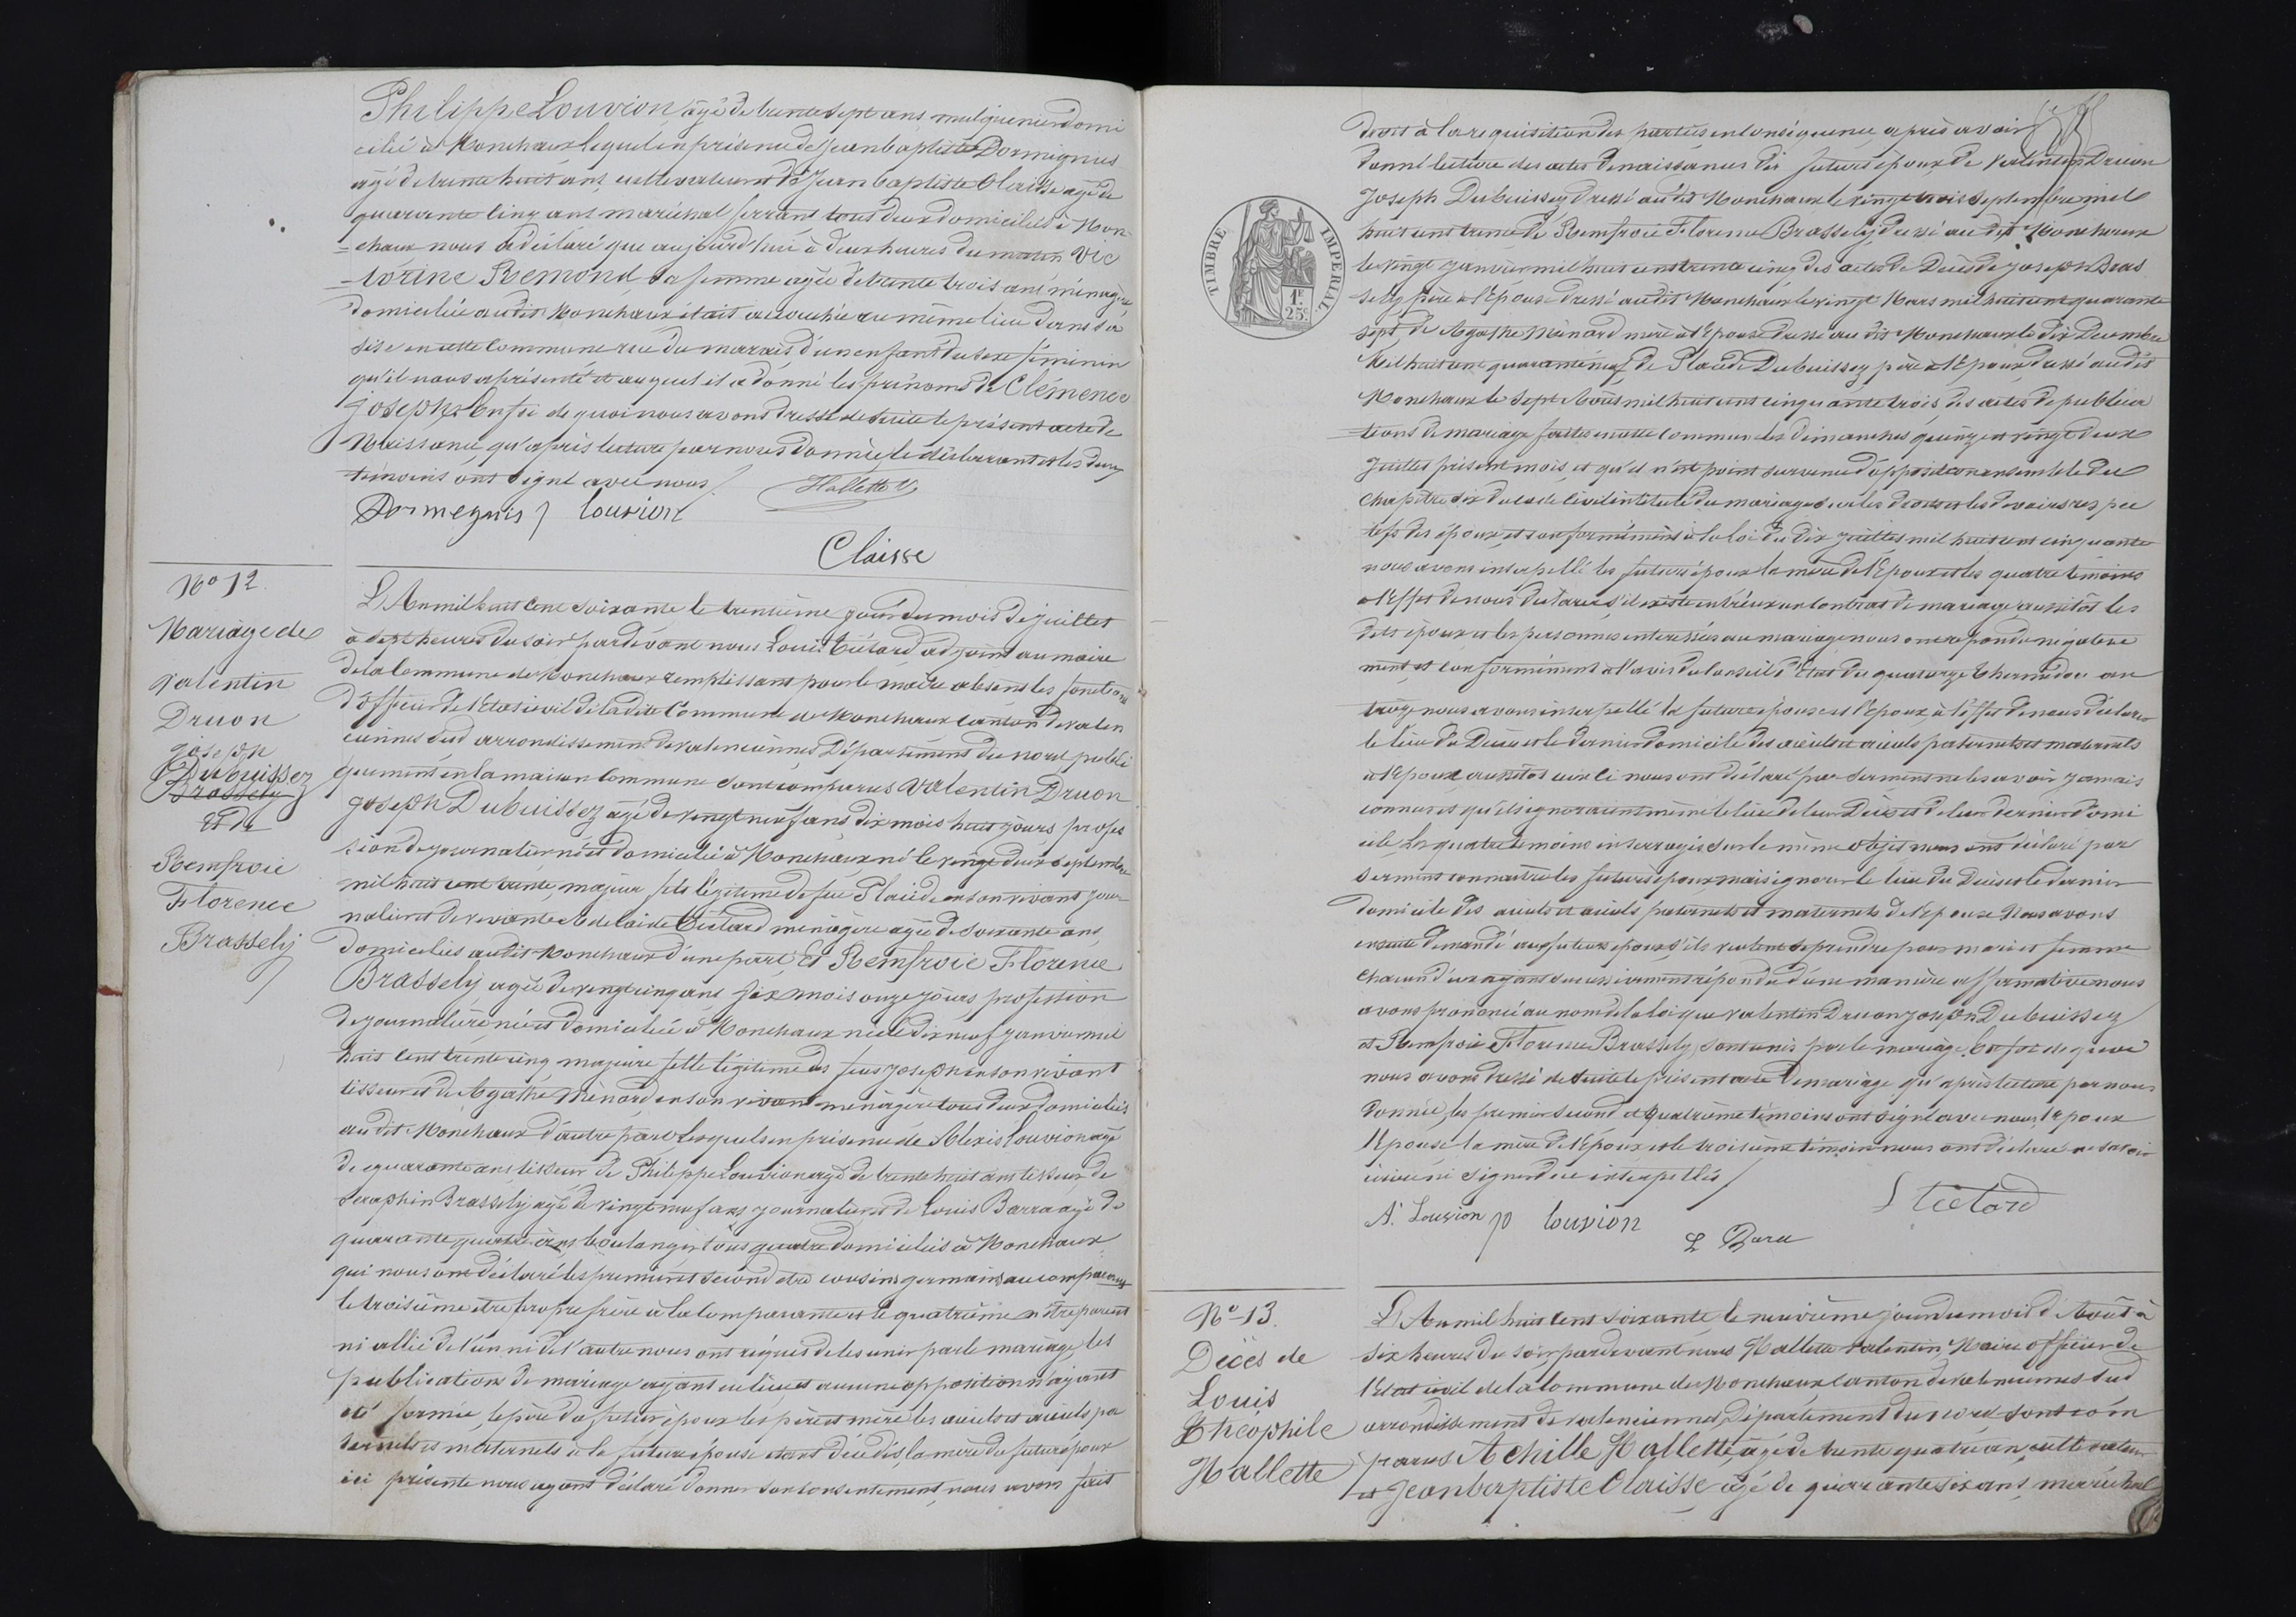 Philippe Louvion, âgé de trente sept ans mulquinier domi
cilié à Monchaux lequel en présence de Jean baptiste Dormignies
âgé de trente huit ans cultivateur et de Jean baptiste Claisse âgé de
quarante cinq ans maréchal ferrant tous deux domiciliés à Mon
=chaux nous a déclaré que aujourd'hui à deux heures du matin Vic
=torine Remond sa femme âgée de trente trois ans ménagère
domiciliée audit Monchaux était accouchée au même lieu dans sa
sise en cette Commune rue du marais d'un enfant du sexe féminin
qu'il nous a présenté et auquel il a donné les prénoms de Clémence
Josephe En foi de quoi nous avons dressé de suite le présent acte de
Naissance qu'après lecture par nous donnée, le déclarant et les deux
témoins ont signé avec nous /. Hallette V
Dormegnis / louvion
Claisse
No 12.
Mariage de
Valentin
Druon
Joseph
Dubuissez
Brassely
et de
Remfroie
Florence
Brassely
L'An mil huit Cent soixante le trentième jour du mois de juillet
à sept heures du soir pardevant nous Louis Tiétard, adjoint au maire
de la Commune de Monchaux remplissant pour le maire absent les fonctions
d'officier de l'Etat civil de ladite Commune de Monchaux canton de valen
ciennes Sud arrondissement de valenciennes Département du nord, publi
quement en la maison Commune sont comparus Valentin Druon
Joseph Dubuissez âgé de vingt neuf ans dix mois huit jours profes
sion de journalier né et domicilié à Monchaux, né le vingt deux septembre
mil huit cent trente, majeur fils légitime de feu Placide en son vivant jour
nalier et de vivante Adelaïde Tiétard ménagère âgée de soixante ans
domiciliés audit Monchaux d'une part, Et Remfroie Florence
Brassely âgée de vingt cinq ans six mois onze jours profession
de journalière née et domiciliée à Monchaux née le dix neuf janvier mil
huit cent trente cinq majeure fille légitime des feus Joseph en son vivant
tisseur et de Agathe Ménard en son vivant ménagère tous deux domiciliés
au dit Monchaux d'autre part Lesquels en présence de Alexis Louvion âgé
de quarante ans tisseur de Philippe Louvion âgé de trente huit ans tisseur de
Seraphin Brassely âgé de vingt neuf ans journalier et de Louis Barra âgé de
quarante quatre ans boulanger tous quatre domiciliés à Monchaux
qui nous ont déclaré les premier et second etre cousins germains au comparant
le troisième etre propre frère à la Comparante et le quatrième n'être parent
ni allié de l'un ni de l'autre nous ont requis de les unir par le mariage, les
publications de mariage ayant eu lieu et aucune opposition n'ayant
été formée, le père du futur époux les père et mère les aïeuls et aïeules pa
ternels et maternels de la future épouse étant décédés, la mère du futur époux
ici présente nous ayant déclaré donner son consentement, nous avons fait
droit à la requisition des parties en conséquence, après avoir
donné lecture des actes de naissances des futurs époux de Valentin Druon
Joseph Dubuissez dressé audit Monchaux le vingt trois Septembre mil
huit cent trente de Remfroie Florence Brassely, dressé au dit Monchaux
le vingt janvier mil huit cent trente cinq des actes de Décès de Joseph Bras
sely père à l'Epouse dressé audit Monchaux le vingt Mars mil huit cent quarante
sept, de Agathe Ménard mère à l'Epouse dressé au dit Monchaux le dix Decembre
Mil huit cent quarante neuf de Placide Dubuissez père à l'Epoux dressé audit
Monchaux le sept Août mil huit cent cinquante trois, des actes de publica
tions de mariage faites en cette Commune les dimanches quinze et vingt deux
Juillet présent mois, et qu'il n'est point survenu d'opposition ensemble le du
chapitre six du code Civil intitulé du mariage sur les droits et les devoirs respec
tifs des époux, et conformément à la loi du dix juillet mil huit cent cinquante
nous avons interpellé les futurs époux la mère de l'Epoux et les quatre témoins
a l'effet de nous declarer s'il existe entr'eux un Contrat de mariage aussitôt les
dits époux et les personnes interessées au mariage nous ont répondu négative
ment et conformément à l'avis du Conseil d'Etat du quatorze thermidor an
treize nous avons interpellé la future épouse et l'Epoux à l'effet de nous déclarer
le lieu du Décès et le dernier domicile des aïeuls et aïeules paternels et maternels
à l'Epoux aussitôt ceux ci nous ont déclaré par serment ne les avoir jamais
connus et qu'ils ignoraient même le lieu de leur Décès et de leur dernier domi
cile Les quatre témoins interrogés sur le même objet nous ont déclaré par
serment connaitre les futurs époux mais ignorer le lieu du Décès et le dernier
domicile des aïeuls et aïeules paternels et maternels de l'Epouse Nous avons
ensuite demandé aux futurs époux s'ils veulent se prendre pour mari et femme
chacun d'eux ayant successivement répondu d'une manière affirmative nous
avons prononcé au nom de la loi que Valentin Druon Joseph Dubuissez
et Remfroie Florence Brassely, sont unis par le mariage. En foi de quoi
nous avons dressé de suite le présent acte de mariage qu'après lecture par nous
donnée, les premier second et quatrième témoins ont signé avec nous l'Epoux
l'Epouse la mère de l'époux et le troisième témoin nous ont déclaré ne savoir
écrire ni signer de ce interpellés /
A. Louvion p louvion
L Bara
L tiétard
TIMBRE IMPERIAL
1F. 25c.
No 13.
Décès de
Louis
Théophile
Hallette
L'An mil huit Cent soixante, le neuvième jour du mois d'Août à
six heures du soir, pardevant nous Hallette Valentin, Maire officier de
l'Etat civil de la Commune de Monchaux Canton de Valenciennes Sud
arrondissement de valenciennes, Département du nord sont com
parus Achille Hallette, âgé de trente quatre ans, cultivateur
et Jean baptiste Claisse âgé de quarante six ans, maréchal